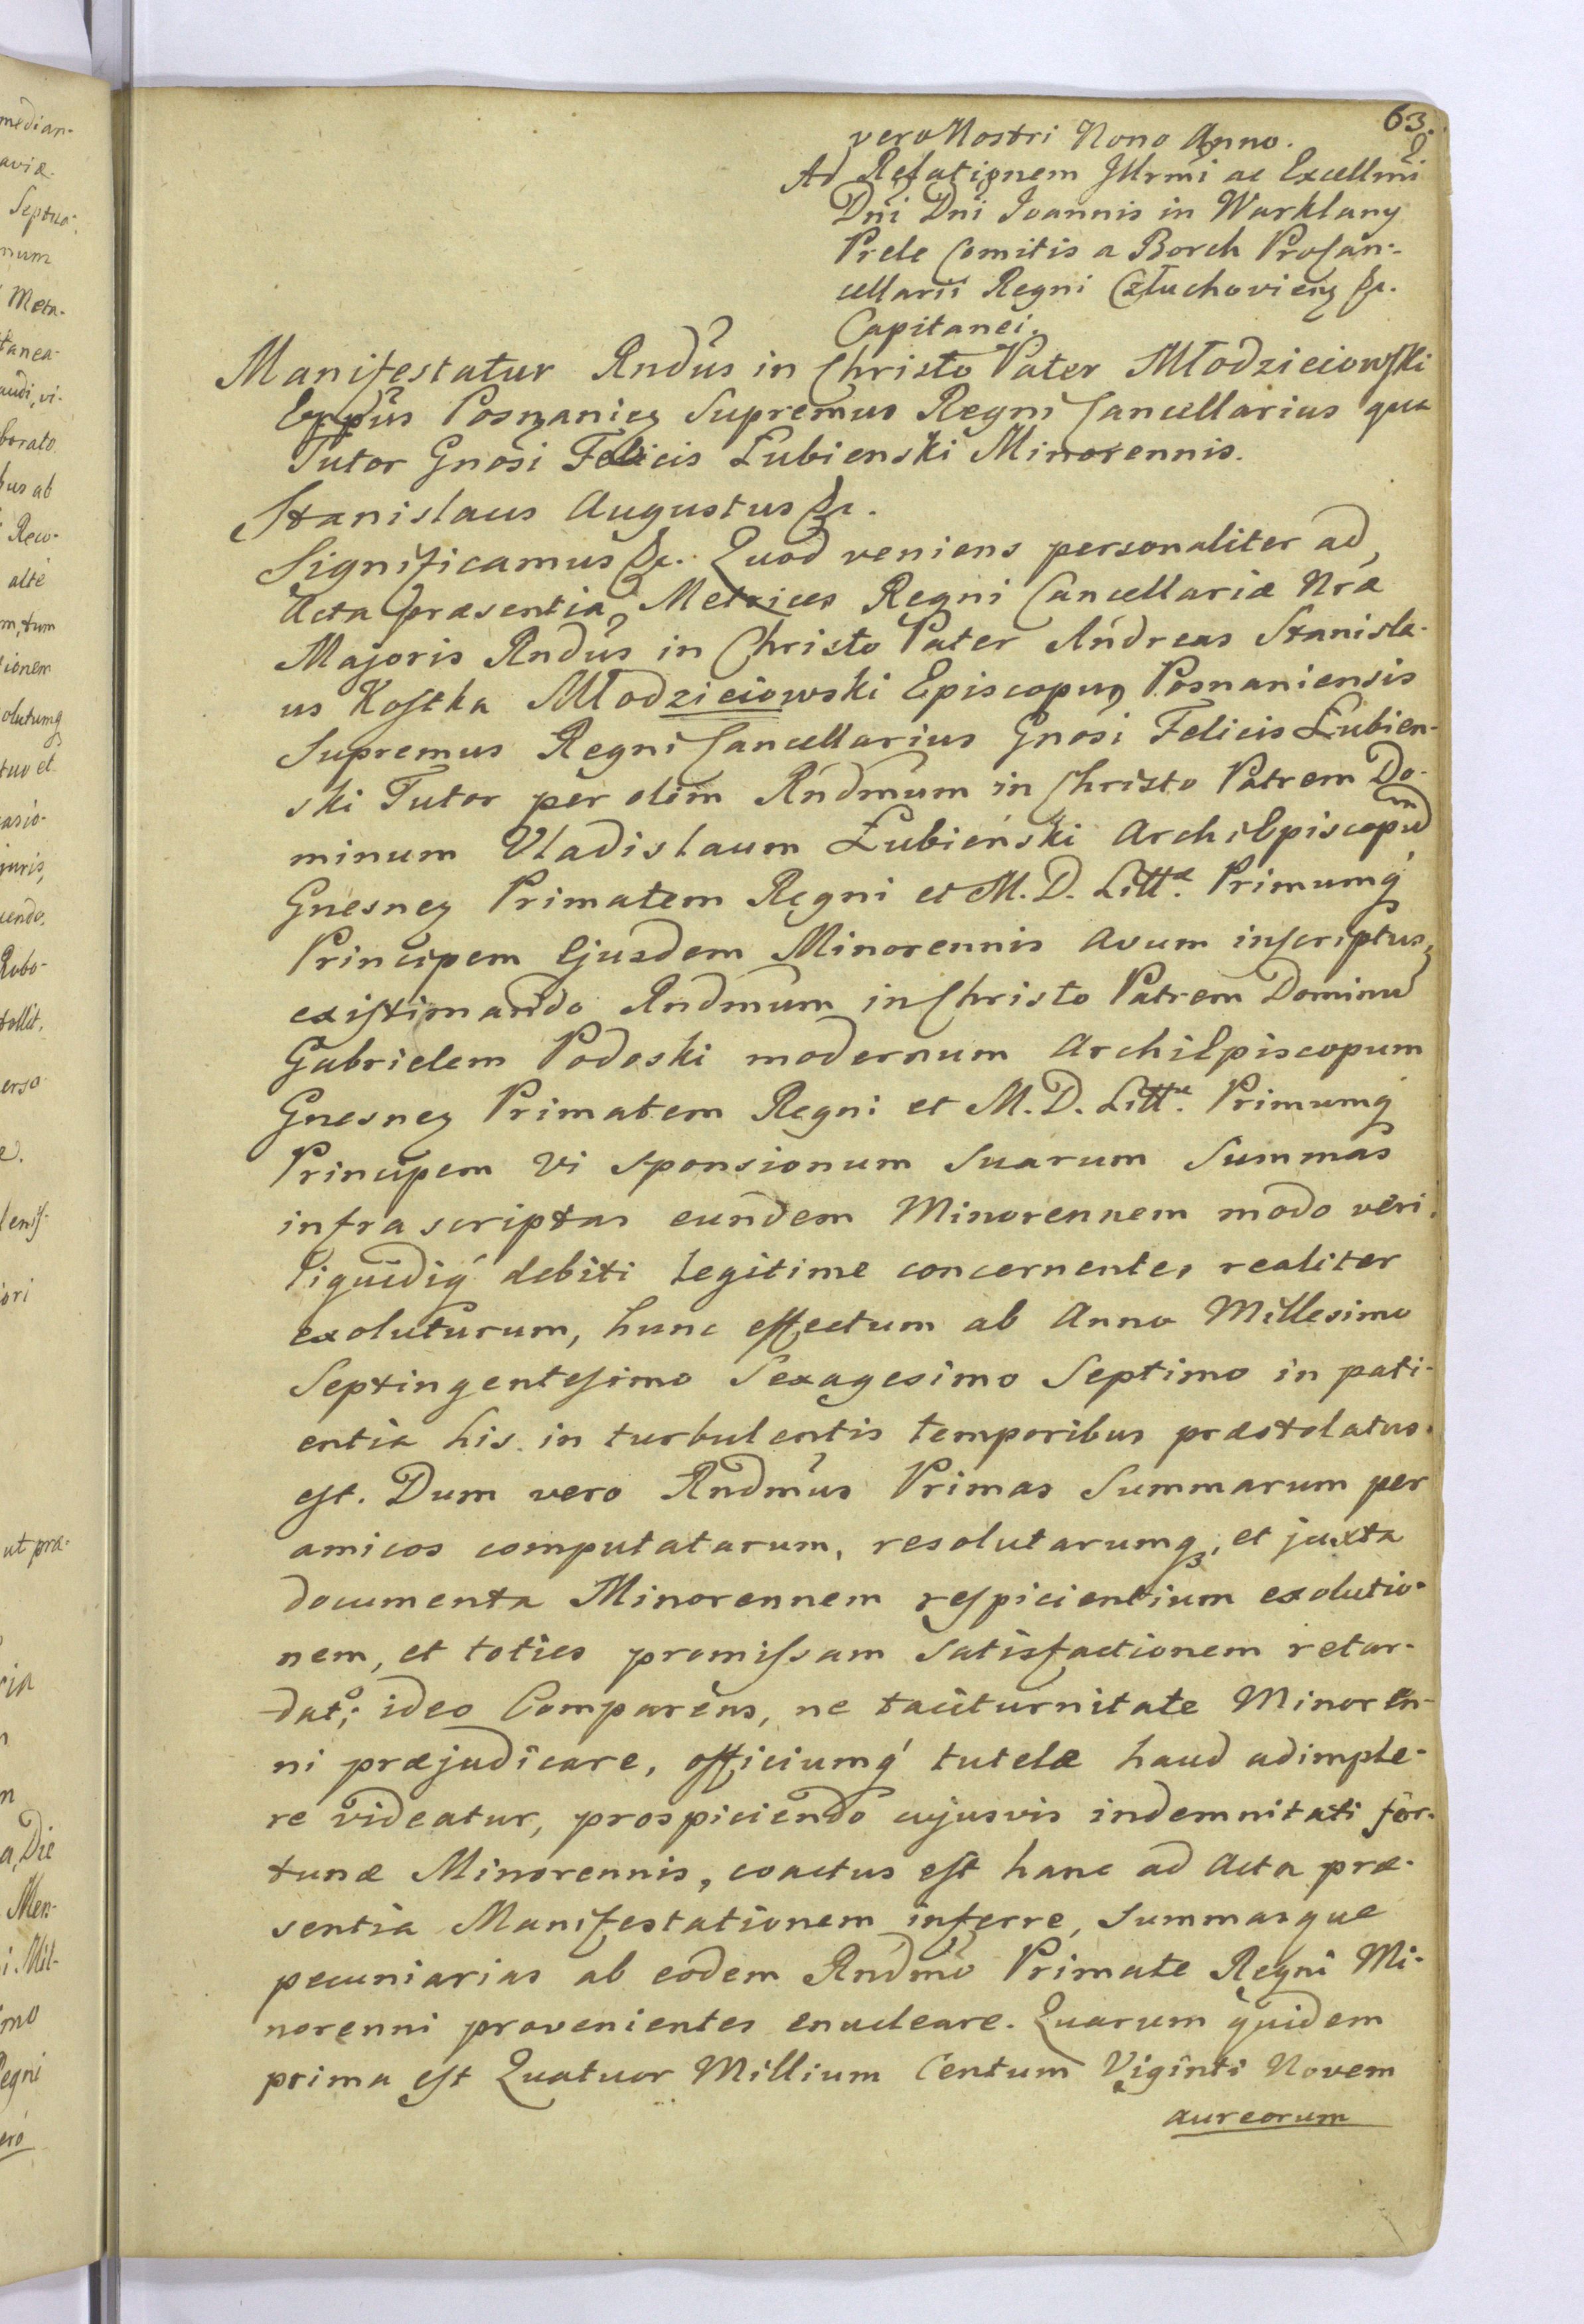 63.
vero Nostri Nono Anno.
Ad Relationem Illrmi ac Excellmi
Dni Dni Joannis in Warklany
Prele Comitis a Borch Procan-
cellarii Regni Człuchovien &c.
Capitanei.
Manifestatur Rndus in Christo Pater Młodzieiowski
Eppus Posnanien Supremus Regni Cancellarius qua
Tutor Gnosi Felicis Łubienski Minorennis.
Stanislaus Augustus &c.
Significamus &c. Quod veniens personaliter ad
Acta præsentia Metrices Regni Cancellariæ Nræ
Majoris Rndus in Christo Pater Andreas Stanisla-
us Kostka Młodzieiowski Episcopus Posnaniensis
Supremus Regni Cancellarius Gnosi Felicis Łubien-
ski Tutor per olim Rndmum in Christo Patrem Do-
minum Vladislaum Łubieński ArchiEpiscopum
Gnesnen Primatem Regni et M. D. Littæ. Primumq
Principem Ejusdem Minorennis Avum inscriptus,
existimando Rndmum in Christo Patrem Dominu
Gabrielem Podoski modernum ArchiEpiscopum
Gnesnen Primatem Regni et M. D. Littæ. Primumq
Principem vi sponsionum suarum Summas
infrascriptas eundem Minorennem modo veri
liquidiq debiti legitime concernentes realiter
exoluturum, hunc effectum ab Anno Millesimo
Septingentesimo Sexagesimo Septimo in pati-
entia his in turbulentis temporibus præstolatus
est. Dum vero Rndmus Primas Summarum per
amicos computatarum, resolutarumq, et juxta
documenta Minorennem respicientium exolutio-
nem, et toties promissam satisfactionem retar-
dat; ideo Comparens, ne taciturnitate Minoren-
ni præjudicare, officiumq tutelæ haud adimple-
re videatur, prospiciendo cujusvis indemnitati for-
tunæ Minorennis, coactus est hanc ad Acta præ-
sentia Manifestationem inferre, summasque
pecuniarias ab eodem Rndmo Primate Regni Mi-
norenni provenientes enucleare. Quarum quidem
prima est Quatuor Millium Centum Viginti Novem
aureorum